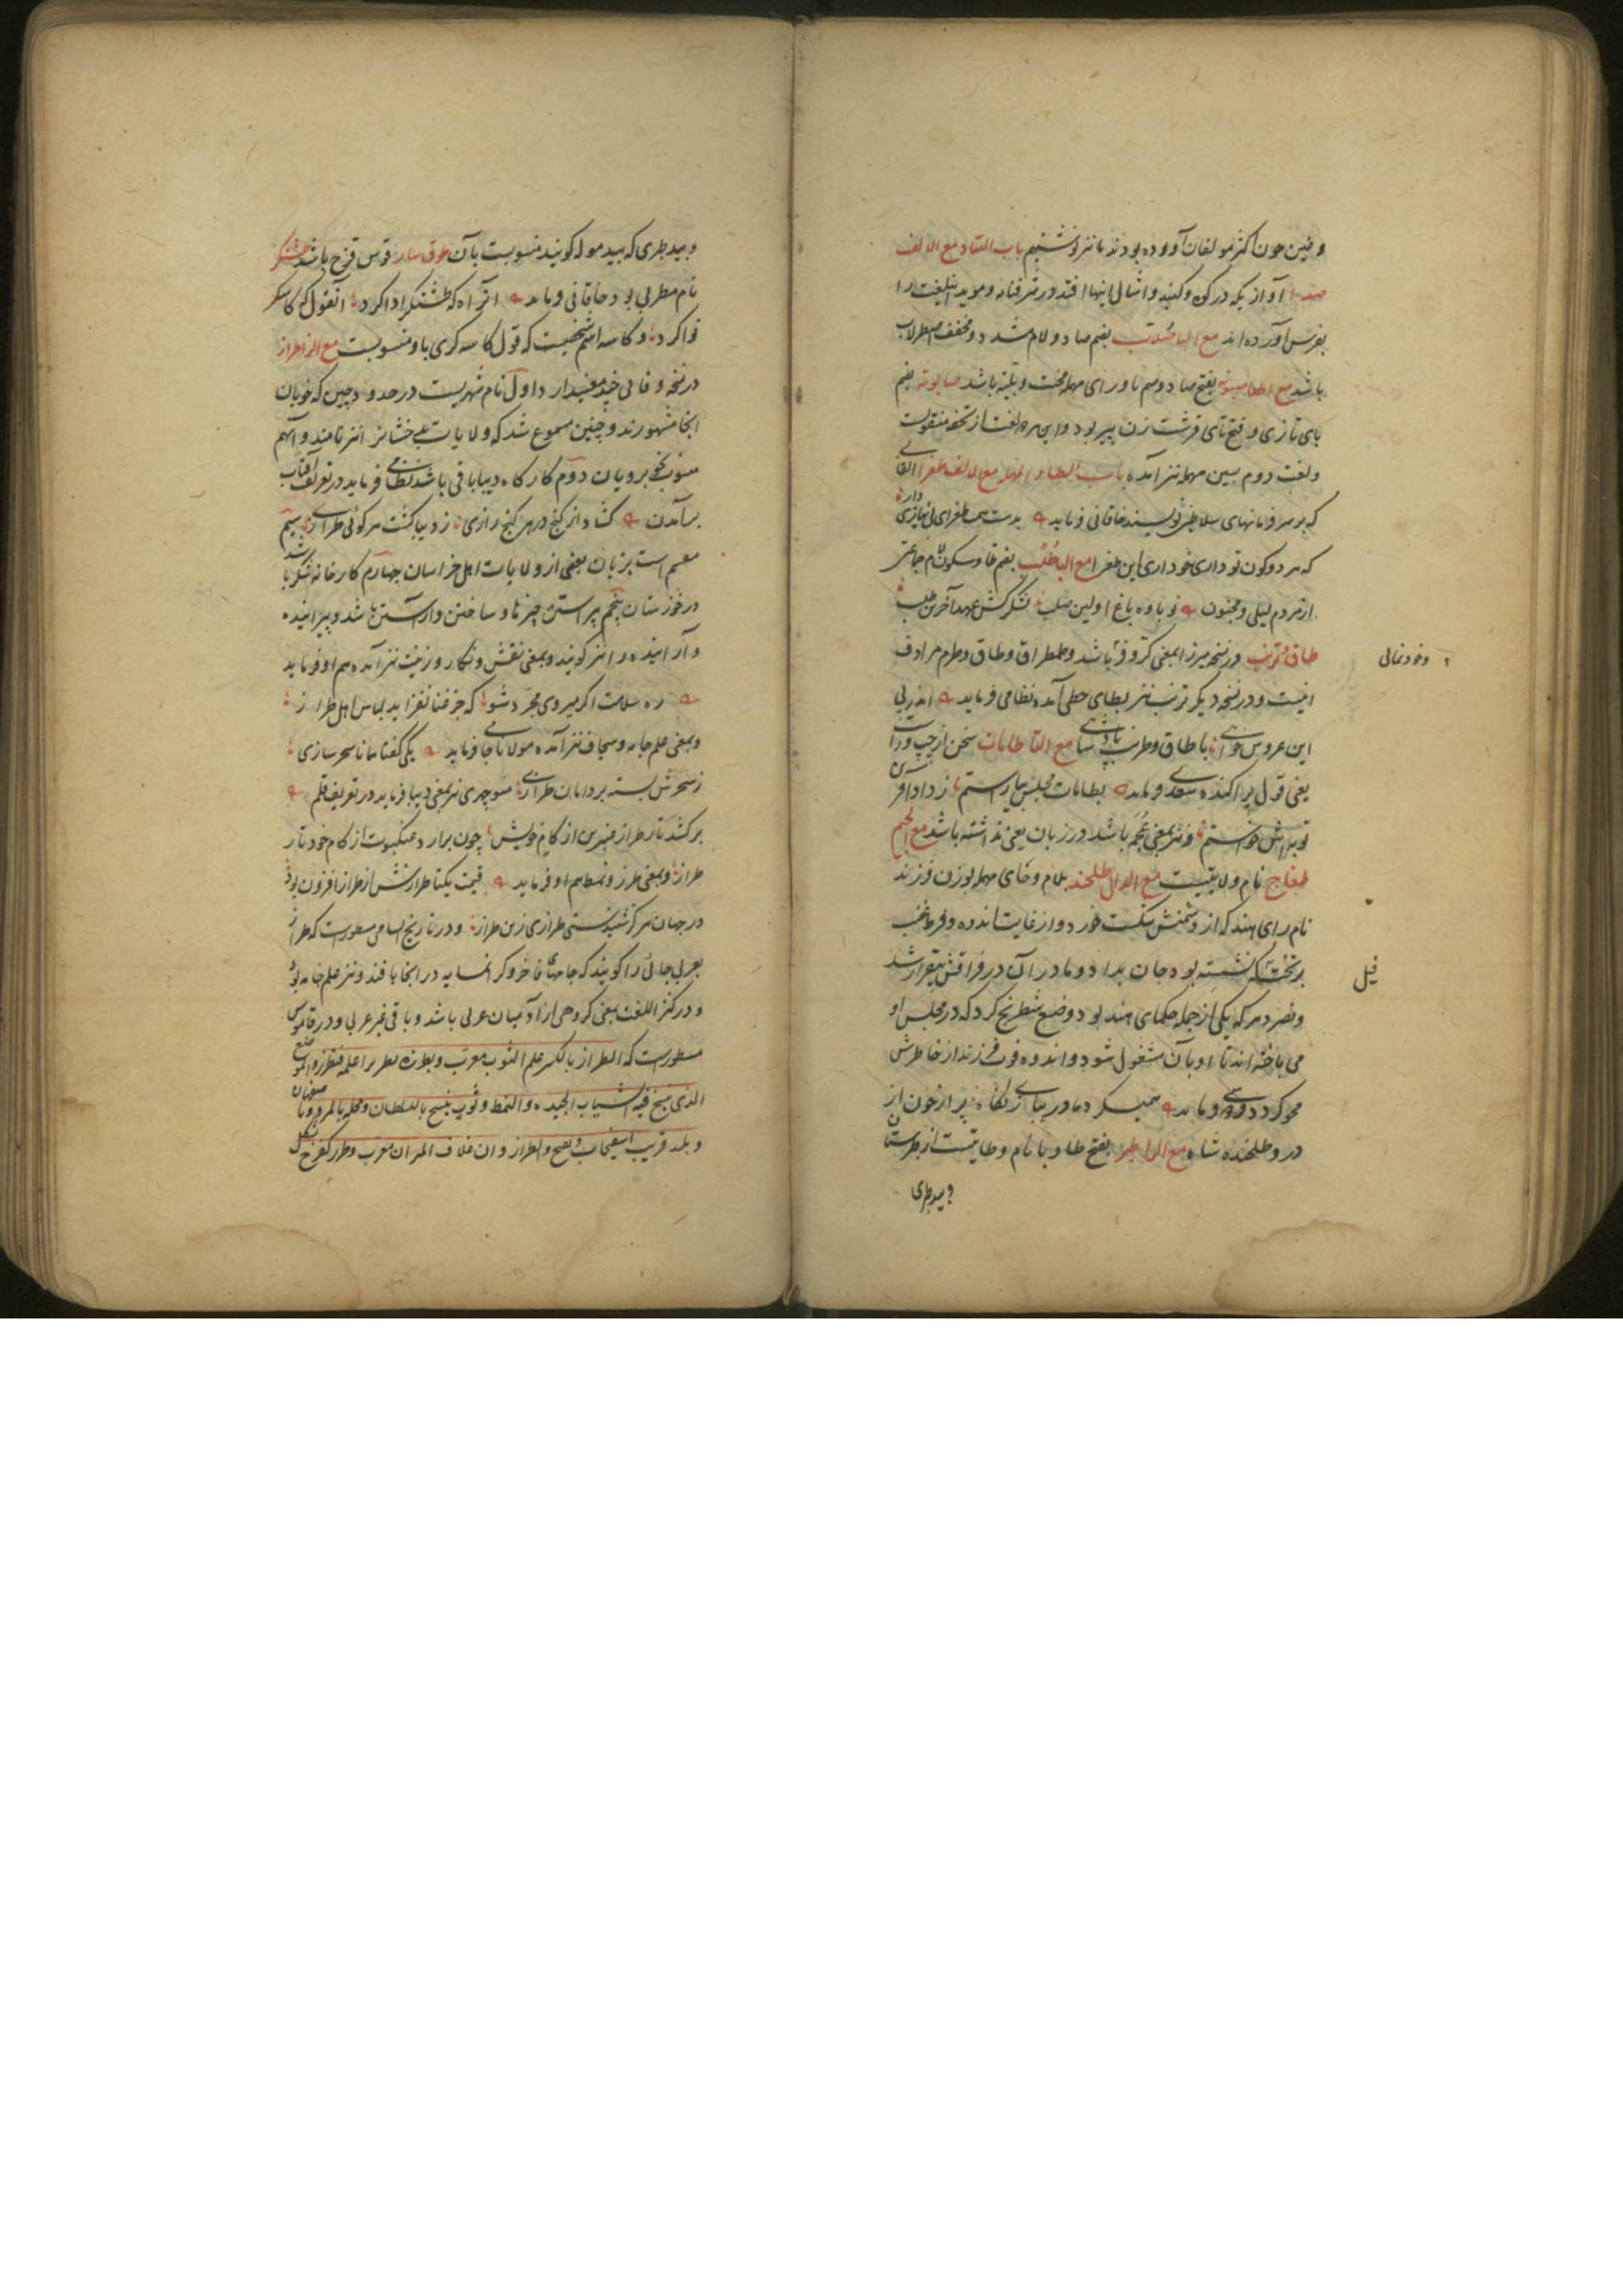 و غین چون اکثر مولفان آورده بودند ما نیز نوشتیم باب الصاد مع الالف
صدا آوازیکه در کوه و گنبد و امثال اینها افتد در شرفنامه و موید این لغت را
بفرس آورده اند مع البا صُلاّب بضم صاد و لام مشدد مخفف اصطرلاب
باشد مع بفتح صاد و سیم و رای مهمله باشد صابوته بضم
بای تازی و فتح تای قرشت زن پیر بود و این هر دو لغت از تحفه منقولست
و لغت دوم بسین مهمله نیز آمده باب الطاء المهمله مع الالف طغرا القابی
که بر سر فرمانهای سلاطین نویسند خاقانی فرماید بدست همت طغرای بی نیازی دار
که هر دو کون تو داری چو داری این طغرا مع البا طُلْب بضم طا و سکون لام جماعتی
از مردم لیلی و مجنون نوباوه باغ اولین صلب لشکرکش عهد آخرین طلب
طاق و ترنب در نسخه میرزا بمعنی کر و فر باشد و طمطراق و طاق و طرم مرادف
اینست و در نسخه دیگر ترنب نیز بطای حطی آمده نظامی فرماید اندر پی
این عروس با طاق و طرنب پادشاهی مع التا طامات سخن از چپ و راست
یعنی قول پراکنده سعدی فرماید بطامات مجلس بیاراستم ز داد آفرین
توبه اش خواستم و نیز بمعنی باشد در زبان یعنی نداشته باشد مع الجیم
طغاج نام ولایتیست مع الدال طلحند بلام و حای مهمله بوزن فرزند
نام رای هند که از دشمنش شکست خورد و از غایت اندوه و فرط غضب
بر تخت نشسته بود جان بداد و مادر آن در فراقش بیقرار شد
و که یکی از جمله حکمای هند بود وضع شطرنج کرد که در مجلس او
می باخته اند تا او بآن مشغول شود و اندوه فوت فرزند از خاطرش
محو گردد فردوسی فرماید همیکرد مادر ببازی نگاه پر از خون دل از
درد طلحنده شاه مع الرا طبر بفتح طا و با نام ولایتیست از طبرستان
و بید طبری
و خودنمائی
فیل
و بید طبری که بید موله گویند منسوبست بآن طوق بهار قوس قزح باشد طشتگر
نام مطربی بود خاقانی فرماید آن آه که طشتگر ادا کرد آنقول که کاسه گر
نوا کرد و کاسه اسم شخصیست که قول کاسه گری باو منسوبست مع الزا طراز
در نسخه وفائی چند معنی دارد اول نام شهریست در حدود چین که خوبان
آنجا مشهورند و چنین مسموع شد که ولایات بدخشان را نیز نامند و آنهم
منسوب بخوبرویان دوم کارگاه دیبابافی باشد نظامی فرماید در تعریف آفتاب
برآمدن گشاد از گنج در هر کنج رازی ز دیبا گشت هر کوئی طرازی سیم
معمم است بزبان بعضی از ولایات اهل خراسان چهارم کارخانه شکر باشد
در خوزستان پنجم پیراستن چیزها و ساختن و آراستن باشد و پیراینده
و آراینده را نیز گویند و بمعنی نقش و نگار و زینت نیز آمده هم او فرماید
ره سلامت اگر میروی مجرد شو که جز فنا نفزاید لباس اهل طراز
و بمعنی علم جامه و سجاف نیز آمده مولانا جامی فرماید یکی گفتا همانا سحرسازی
ز سحرش بسته بر دامان طرازی منوچهری نیز بمعنی دیبا فرماید در تعریف قلم
برکشد تار طراز عنبرین از کام خویش چون برآرد عنکبوت از کام خود تار
طراز و بمعنی طرز و نمط هم او فرماید قیمت یکتا طرازش از طراز افزون بود
در جهان هرگز شنیدستی طرازی زین طراز و در تاریخ السامی مسطورست که طراز
بعربی جائی را گویند که جامهای فاخر و گرانمایه در آنجا بافند و نیز علم جامه بود
و در کنز اللغت بمعنی گروهی از آدمیان عربی باشد و باقی غیر عربی و در قاموس
مسطورست که الطراز بالکسر علم الثوب معرب و طرزه تطریزا علمه فتطرز والموضع
الذی ینسج فیه الثیاب الجیده والنمط و ثوب ینسج بالسلطان و محله بالمرو و باصفهان
و بلد قریب اسفیجاب و یفتح والطراز معرب و طرز کفرح